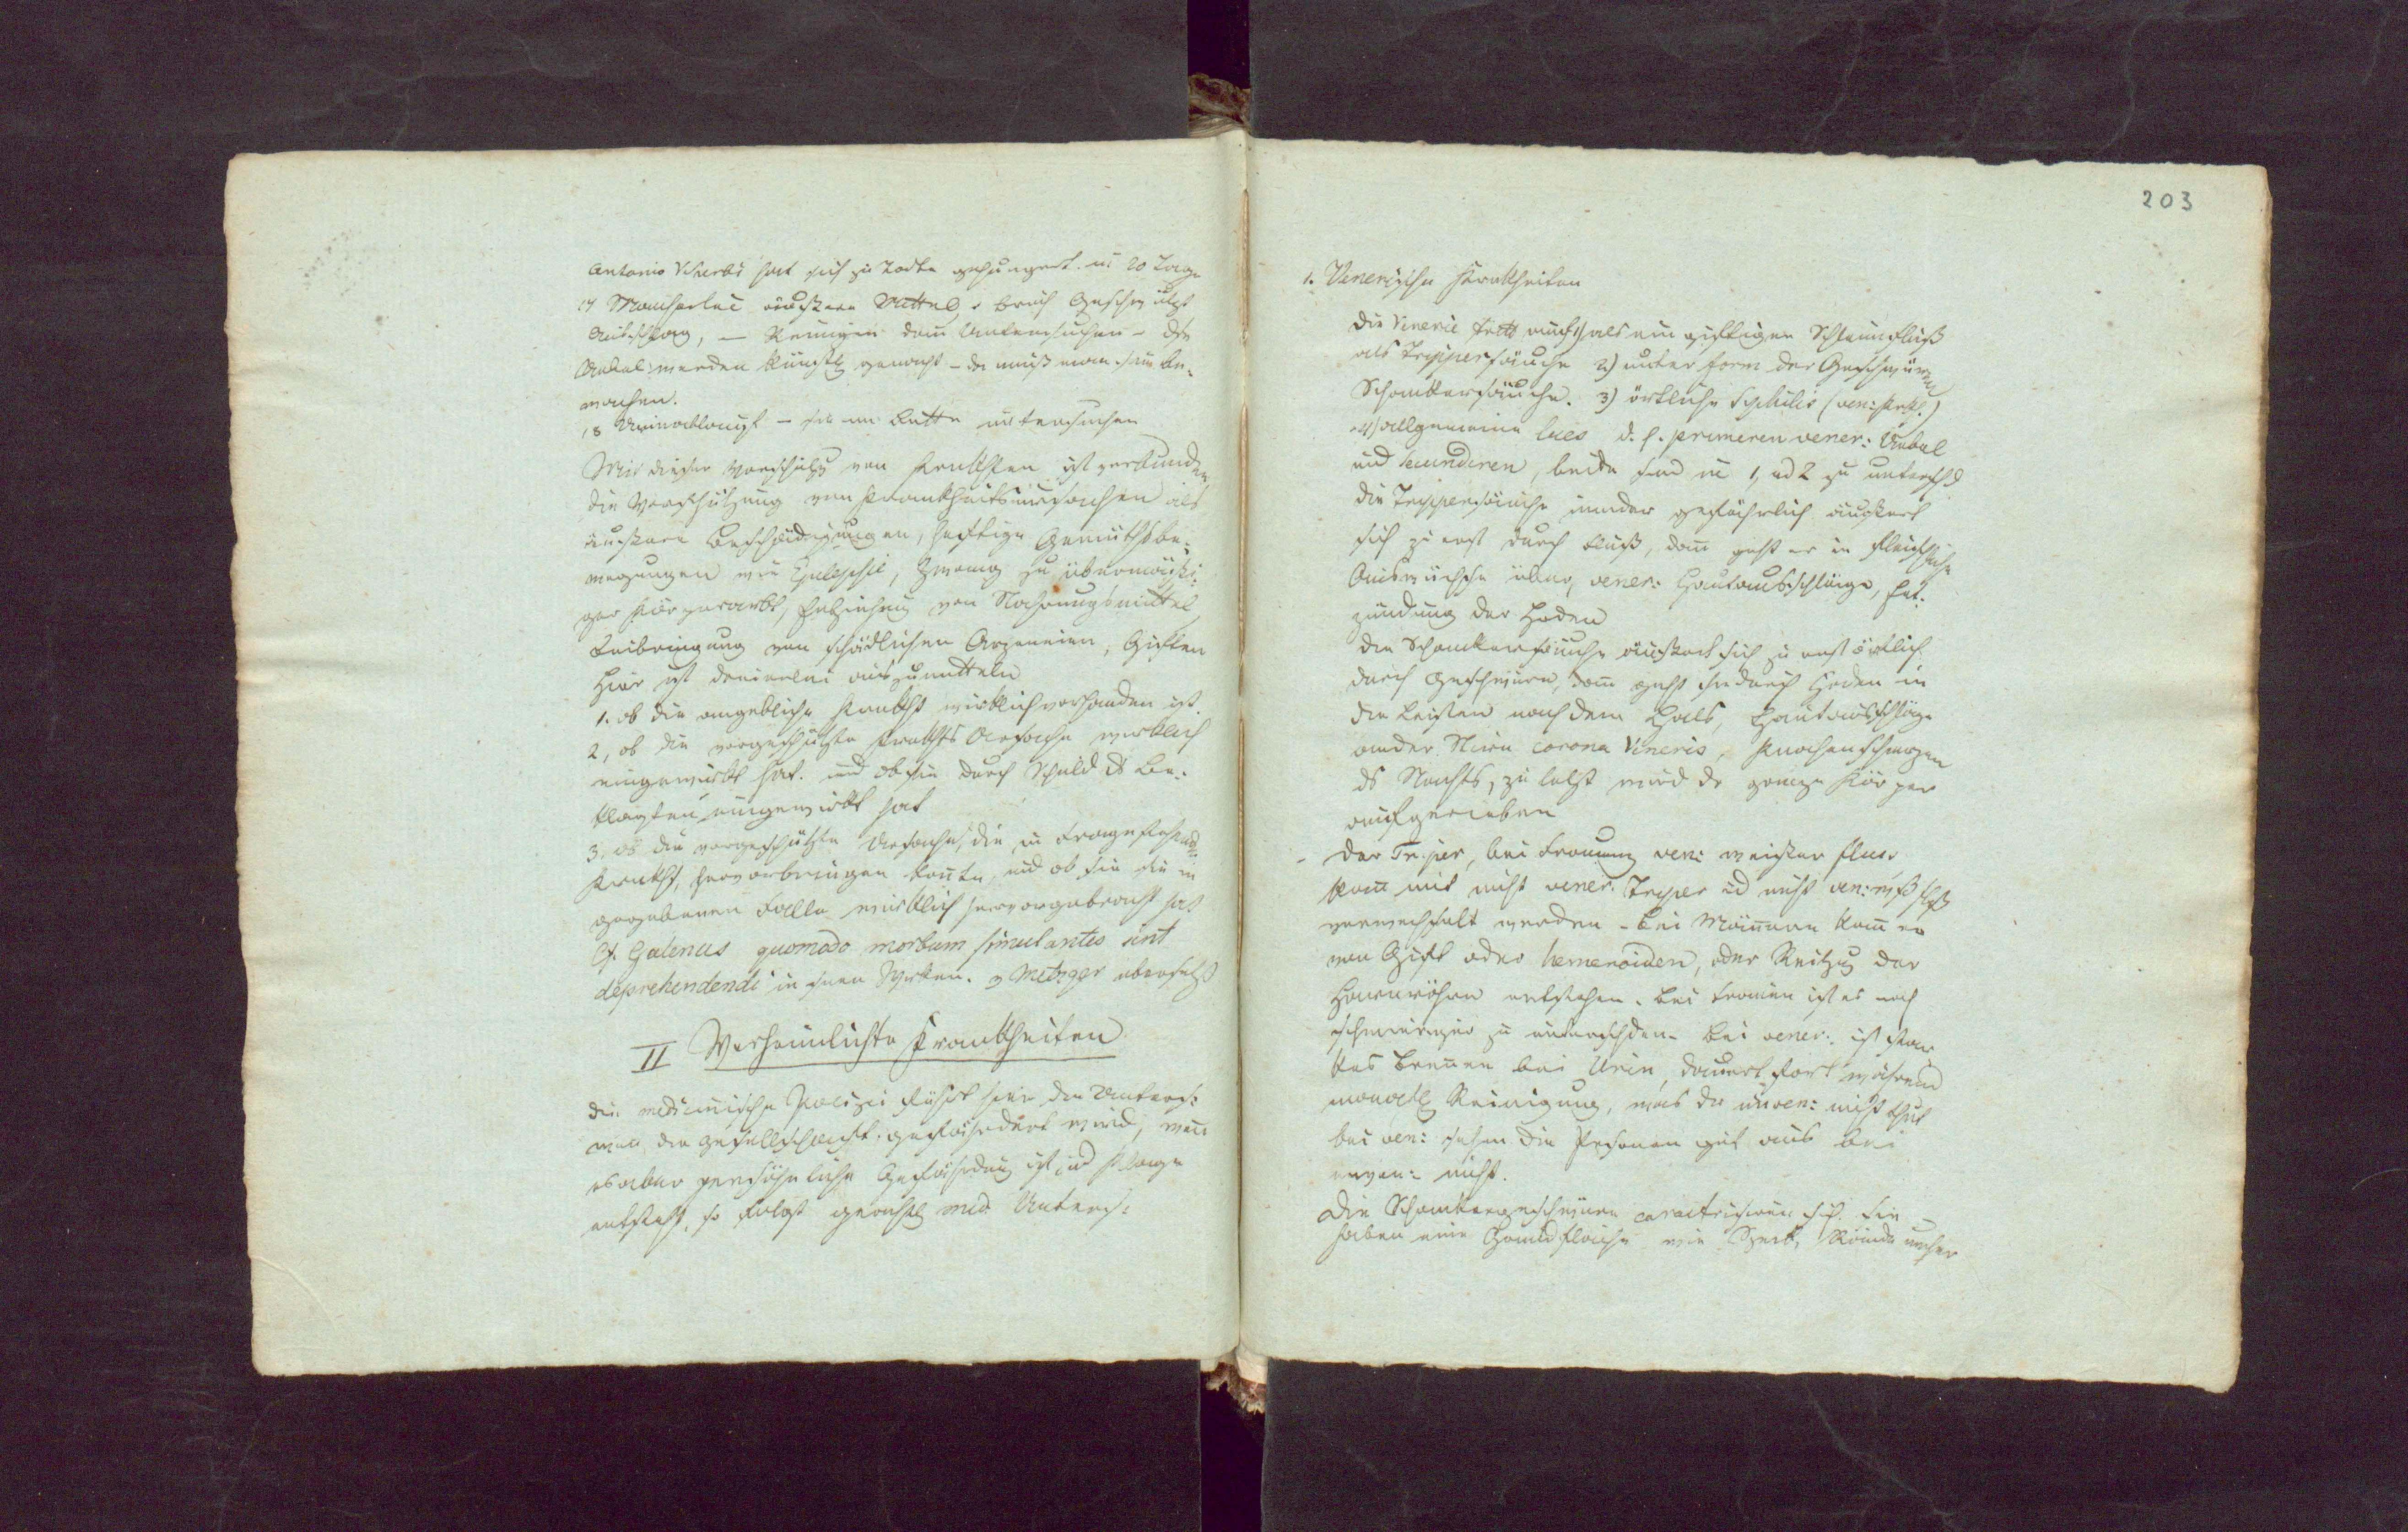 Antonio Viterbi hat sich zu Todte gehungert in 20 Tage
17 Mancherlei äußere Mittel, Bruch Geschwülst
Ausschlag, — Reinigen dann Untersuchen – die
Uebel werden künstl gemacht – da muß man sie be-
wachen.
18 – sie im Bette untersuchen
Mit dieser Vorschütz von Krankhten ist verbunden
die Vorschützung von Krankheitsursachen als
äußere Beschädigungen, heftige Gemüthsbe-
wegungen wie Epilepsie, Zwang zu übermäßi-
ger Körperarbt, Entziehung von Nahrungsmittel
Beibringung von schädlichen Arzeneien, Giften
Hier ist dreierlei auszumitteln
1. ob die angebliche Krankht wirklich vorhanden ist.
2, ob die vorgeschützte Krankhts Ursache wirklich
eingewirkt hat. und ob sie durch Schuld ds Be-
klagten eingewirkt hat
3. ob die vorgeschützte Ursache, die in Frage stehende
Krankht, hervorbringen konnte, und ob sie sie in
gegebenen Falle wirklich hervorgebracht hat
Cf. Galenus quomodo morbum simulantes sint
deprehendendi in seinen Werken. v Metzger übersetzt
II Verheimlichte Krankheiten
die medicinische Polizei führt hier die Untersu:
wen die Gesellschaft gefährdet wird, wenn
es aber persöhnliche Gefährdung ist und Klage
entsteht, so folgt gerichtl med. Untersu:
203
1. Venerische Krankheiten
die Venerie tritt auf 1) als ein giftiger Schleimfluß
als Trippersäuche 2) unter Form der Geschwüre
Schankersäuche. 3) örtliche Syphilis (ven: Krkh.)
4) allgemeine lues d. h. primeren vener: Uebel
und secunderen, beide sind in 1, ud 2 zu untersch
die Trippersäuche minder gefährlich äußert
sich zu erst durch Fluß, dann geht er in fleischliche
Auswüchse über, vener: Hautausschläge, Ent-
zündung der Hoden
die Schankersäuche äußert sich zu erst örtlich
durch Geschwüre, dann geht sie durch Hoden in
die Leisten nach dem Hals, Hautausschläge
an der Stirn corona Veneris, Knochenschmerzen
ds Nachts, zu letzt wird der ganze Körper
aufgerieben
– Der Tripper, bei Frauen ven: weißer Fluß
kann mit nicht vener. Tripper ud nicht ven: wß Flß
verwechselt werden – bei Männern kann er
von Gift oder hemeroiden, oder Reitzug der
Harnröhre entstehen. bei Frauen ist es noch
schwieriger zu unterschden. bei vener: ist star
kes Brennen bei Urin, dauert fort während
monatl Reinigung, was der unven: nicht thut
bei ven: sehen die Personen gut aus bei
unven: nicht.
Die Schankergeschwüre caractrisiren sich. sie
haben eine Grundfläche wie Speck, Rände